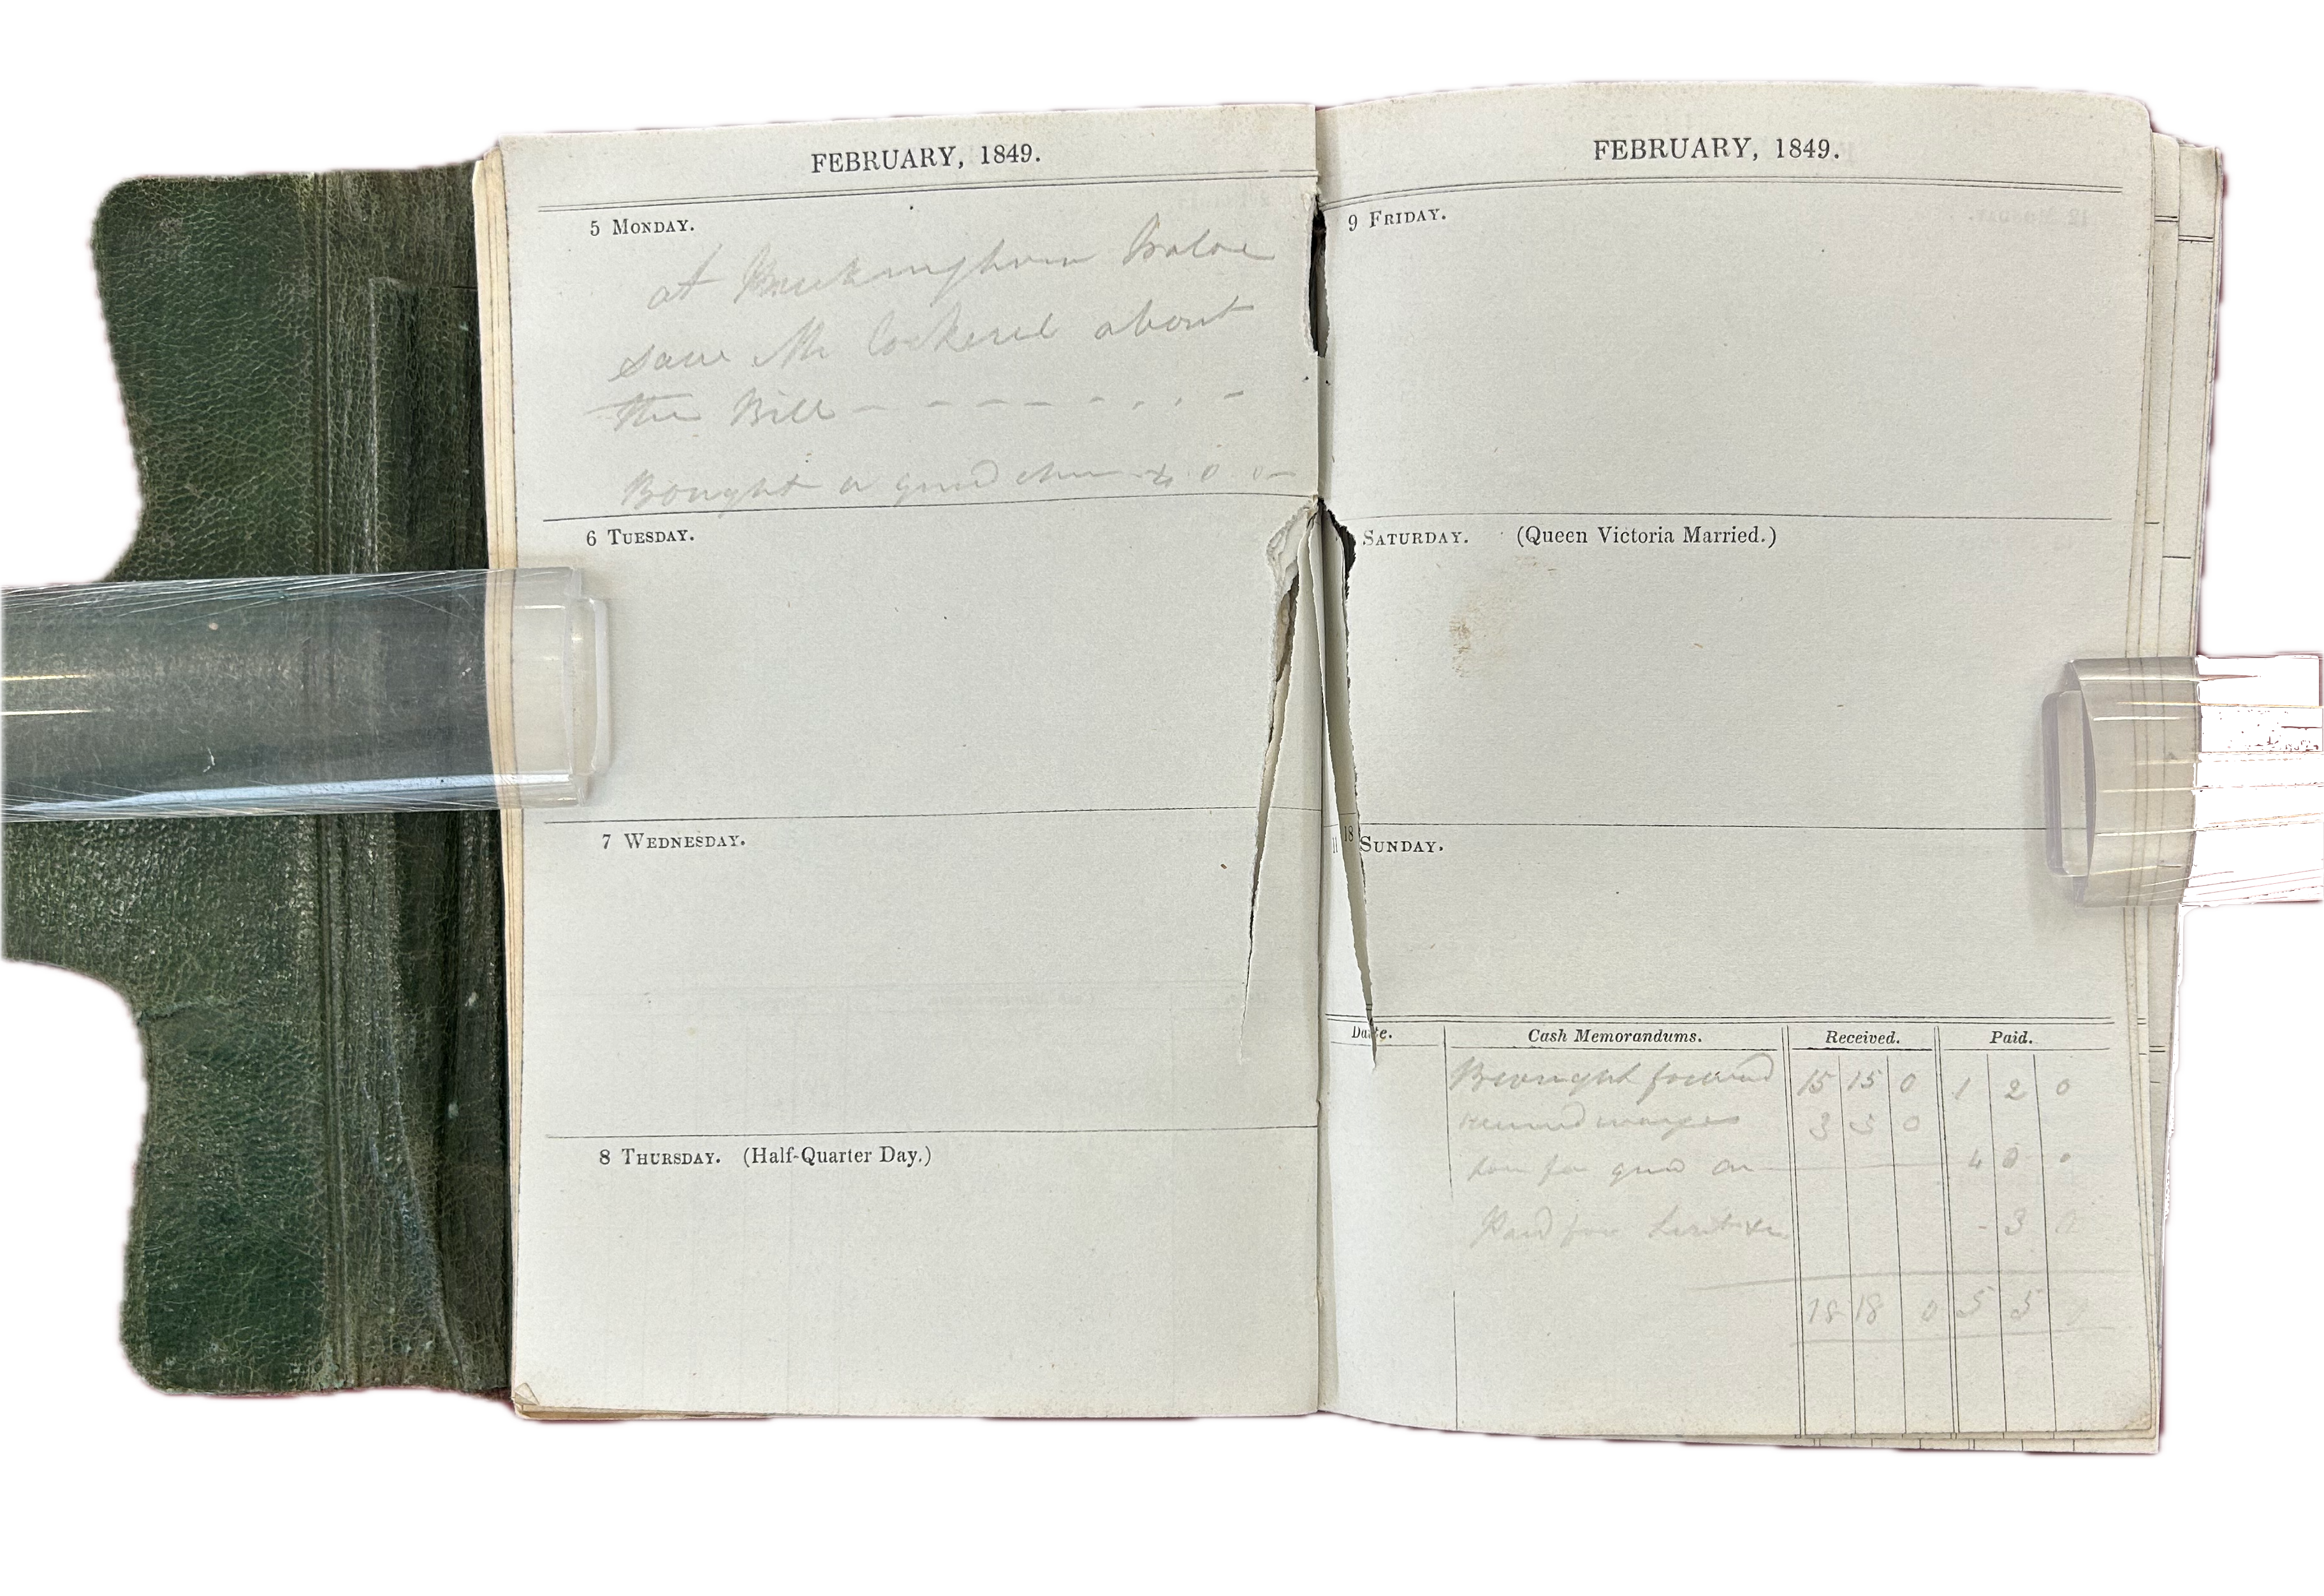 FEBRUARY, 1849.
5 MONDAY.
at Buckingham Palace
saw Mr Cockerel about
the Bill - - - - - - - -
Bought a guard chain 4 0 0
6 TUESDAY.
7 WEDNESDAY.
8 THURSDAY. (Half-Quarter Day.)
FEBRUARY, 1849.
9 FRIDAY.
SATURDAY. (Queen Victoria Married.)
11 18 SUNDAY.
Date. Cash Memorandums. Received. Paid.
Brought forward 15 15 0 1 2 0
3 3 0
for guard 4 0 0
Paid for - 3 0
18 18 0 5 5 0